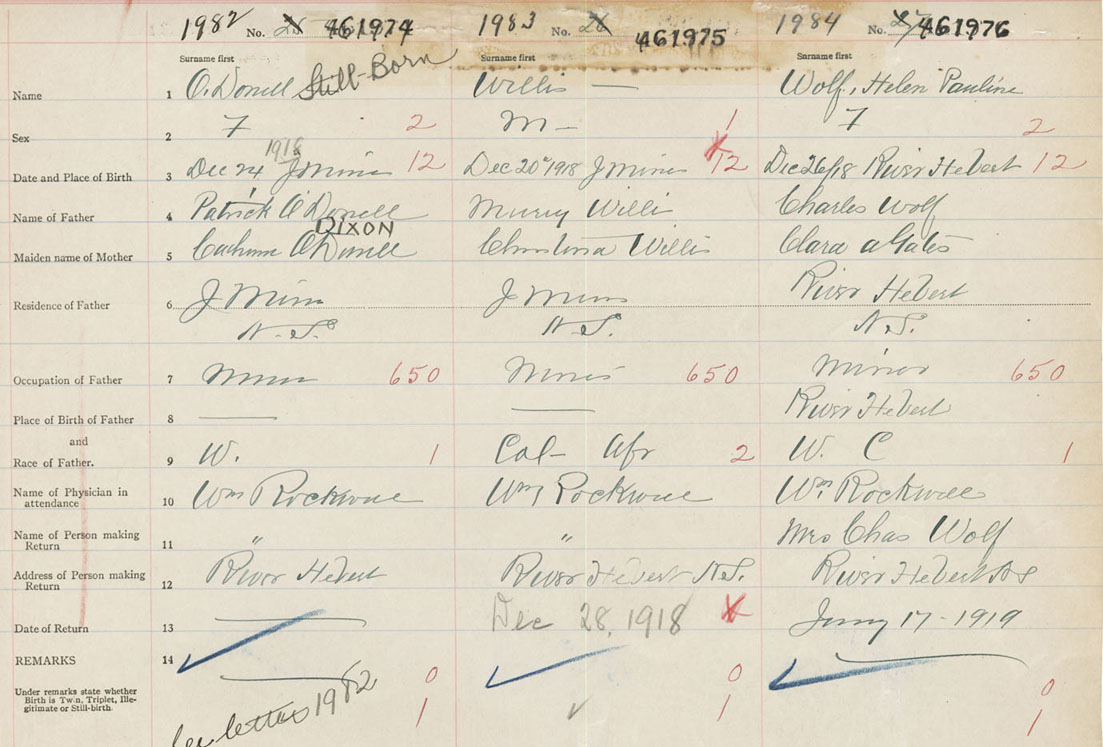 1982 No. 461974 1983 No. 28 461975 1984 No. 27 461976
Surname first Surname first Surname first
Name 1 O'Donell Still-Born Willis — Wolf, Helen Pauline
Sex 2 F 2 M – 1 F 2
Date and Place of Birth 3 Dec 24 1918 J Mines 12 Dec 20" 1918 J Mines 12 Dec 26/18 River Hebert 12
Name of Father 4 Patrick O'Donell Murry Willis Charles Wolf
DIXON
Maiden name of Mother 5 O'Donell Christina Willis Clara
Residence of Father 6 J Mines J Mines River Hebert
N.S. N.S. N.S.
Occupation of Father 7 650 650 Miner 650
Place of Birth of Father 8 — — River Hebert
and
Race of Father. 9 W. 1 Col– Afr 2 W. C 1
Name of Physician in attendance 10 Wm Rockwell Wm Rockwell Wm. Rockwell
Name of Person making Return 11 " " Mrs Chas Wolf
Address of Person making Return 12 River Hebert River Hebert N.S. River Hebert N S
Date of Return 13 — Dec 28, 1918 17 - 1919
REMARKS 14
Under remarks state whether Birth is Twin, Triplet, Illegitimate or Still-birth. 0 0 0
letter 1982 1 1 1